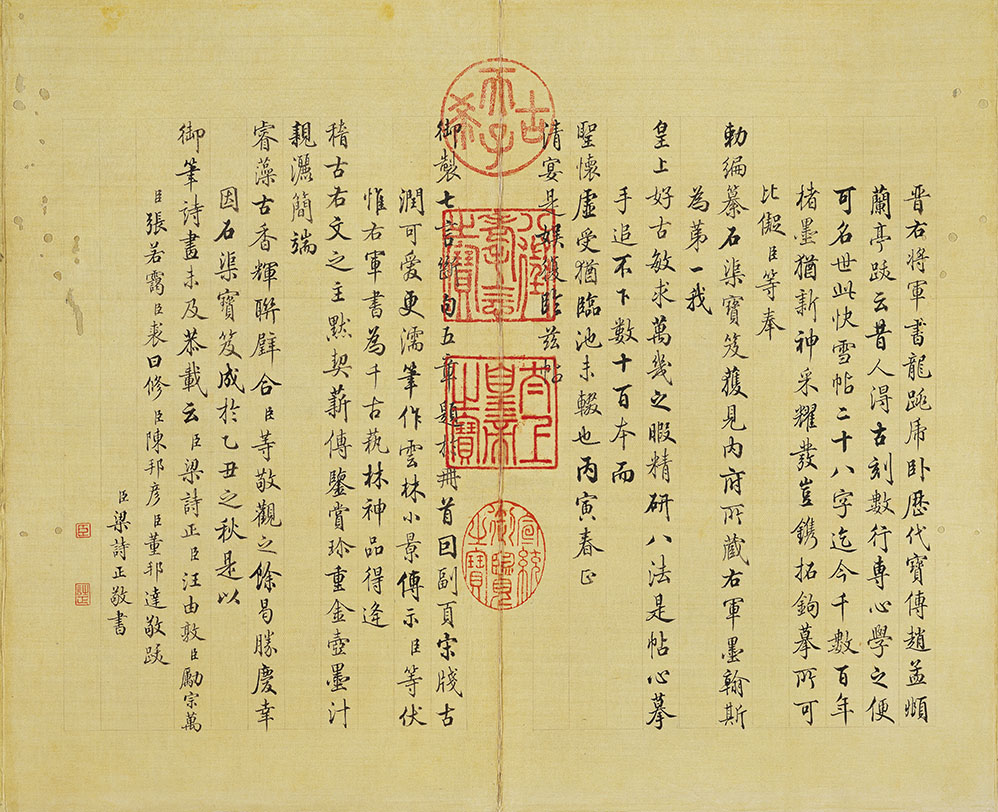 晉右将軍書龍跳虎卧歷代寶傳趙孟頫
蘭亭跋云昔人得古刻數行專心學之便
可名世此快雪帖二十八字迄今千數百年
楮墨猶新神采耀發豈鐫拓鉤摹所可
比儗臣等奉
勅編纂石渠寶笈獲見内府所藏右軍墨翰斯
為第一我
皇上好古敏求萬幾之暇精研八法是帖心摹
手追不下數十百本而
聖懷虛受猶臨池未輟也丙寅春正
清宴是娱復臨兹帖
御製七言斷句五章題於冊首回副頁宋牋古
潤可愛更濡筆作雲林小景傳示臣等伏
惟右軍書為千古藝林神品得逢
稽古右文之主黙契薪傳鑒賞珍重金壺墨汁
親灑簡端
睿藻古香輝聨璧合臣等敬觀之餘曷勝慶幸
因石渠寶笈成於乙丑之秋是以
御筆詩畫未及恭載云臣梁詩正臣汪由敦臣勵宗萬
臣張若靄臣裘曰修臣陳邦彦臣董邦達敬跋
臣梁詩正敬書
古希天子
八徵耄念之寶
太上皇帝之寶
宣統御覽之寶
臣